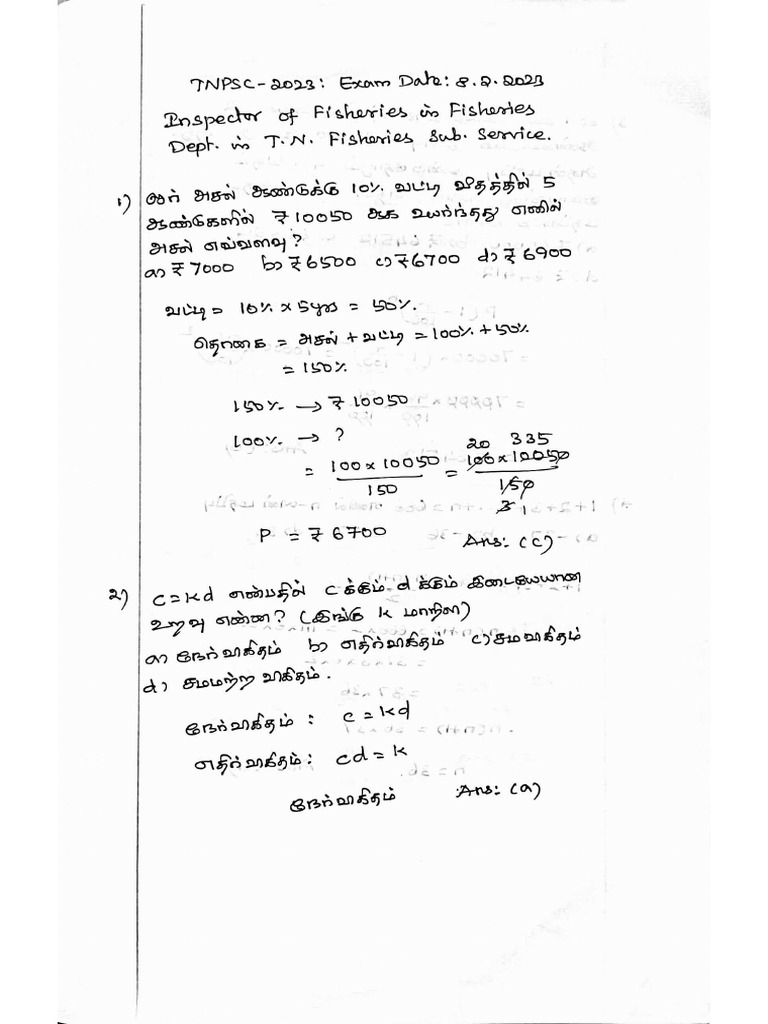 TNPSC-2023: Exam Date: 8.2.2023
Inspector of Fisheries in Fisheries
Dept. in T.N. Fisheries Sub. Service.
1) ஓர் அசல் ஆண்டுக்கு 10% வட்டி வீதத்தில் 5
ஆண்டுகளில் ₹10050 ஆக உயர்ந்தது எனில்
அசல் எவ்வளவு?
a) ₹7000 b) ₹6500 c) ₹6700 d) ₹6900
வட்டி = 10% x 5yrs = 50%.
தொகை = அசல் + வட்டி = 100% + 50%
= 150%
150% → ₹10050
100% → ?
= 100 x 10050 / 150 = 100 x 10050 / 150
20 335
3 1
P = ₹6700 Ans: (c)
2) c=kd என்பதில் c க்கும் d க்கும் இடையேயான
உறவு என்ன? (இங்கு k மாறிலி)
a) நேர்விகிதம் b) எதிர்விகிதம் c) சமவிகிதம்
d) சமமற்ற விகிதம்.
நேர்விகிதம்: c = kd
எதிர்விகிதம்: cd = k
நேர்விகிதம் Ans: (a)